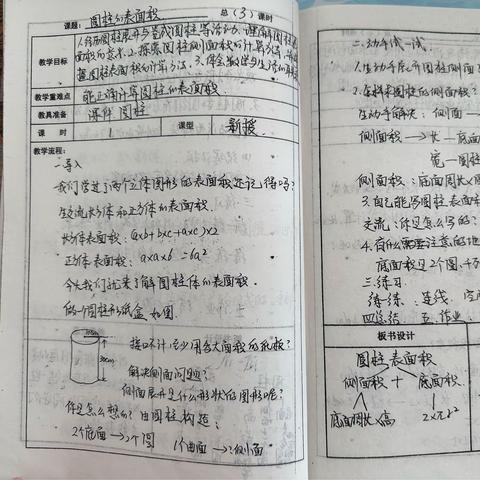 课题：圆柱的表面积 总（3）课时
教学目标
1.经历圆柱展开与卷成圆柱等活动，理解圆柱
面积的意义.2.探索圆柱侧面积的计算方法，掌
握圆柱表面积的计算方法.3.体会数学与生活的
教学重难点 能正确计算圆柱的表面积.
教具准备 课件 圆柱
课 时 1 课型 新授
教学流程：
一.导入
我们学过了两个立体图形的表面积还记得吗？
生交流长方体和正方体的表面积.
长方体表面积：(axb+bxc+axc)x2
正方体表面积：axax6 =6a²
今天我们就来了解圆柱体的表面积.
做一个圆柱形纸盒 如图.
10cm
30cm
接口不计，至少用多大面积的纸板？
解决侧面问题？
侧面展开是什么形状的图形呢？
你是怎么想的？由圆柱构造：
2个底面→2个圆 1个曲面→1个侧面
二.动手试一试.
1.生动手展开圆柱侧面
2.怎样求圆柱的侧面积？
生动手解决：侧面→
侧面积→长→底面
宽→圆柱
侧面积：底面周长x
3.自己能写圆柱表面积
交流：你是怎么写的？
4.有什么需要注意的地
底面面积是2个圆，千万
三.练习
练一练：连线.
四.总结 五.作业：
板书设计
圆柱表面积
侧面积 + 底面积
底面周长x高 2xπr²